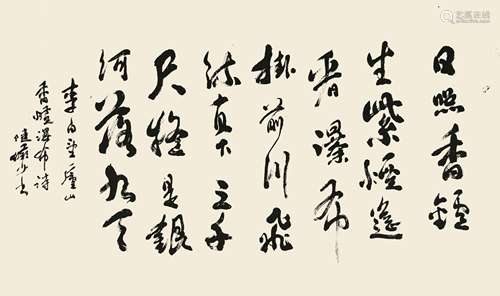 日照香鑪
生紫煙遙
看瀑布
掛前川飛
流直下三千
尺疑是銀
河落九天
李白望廬山
瀑布詩